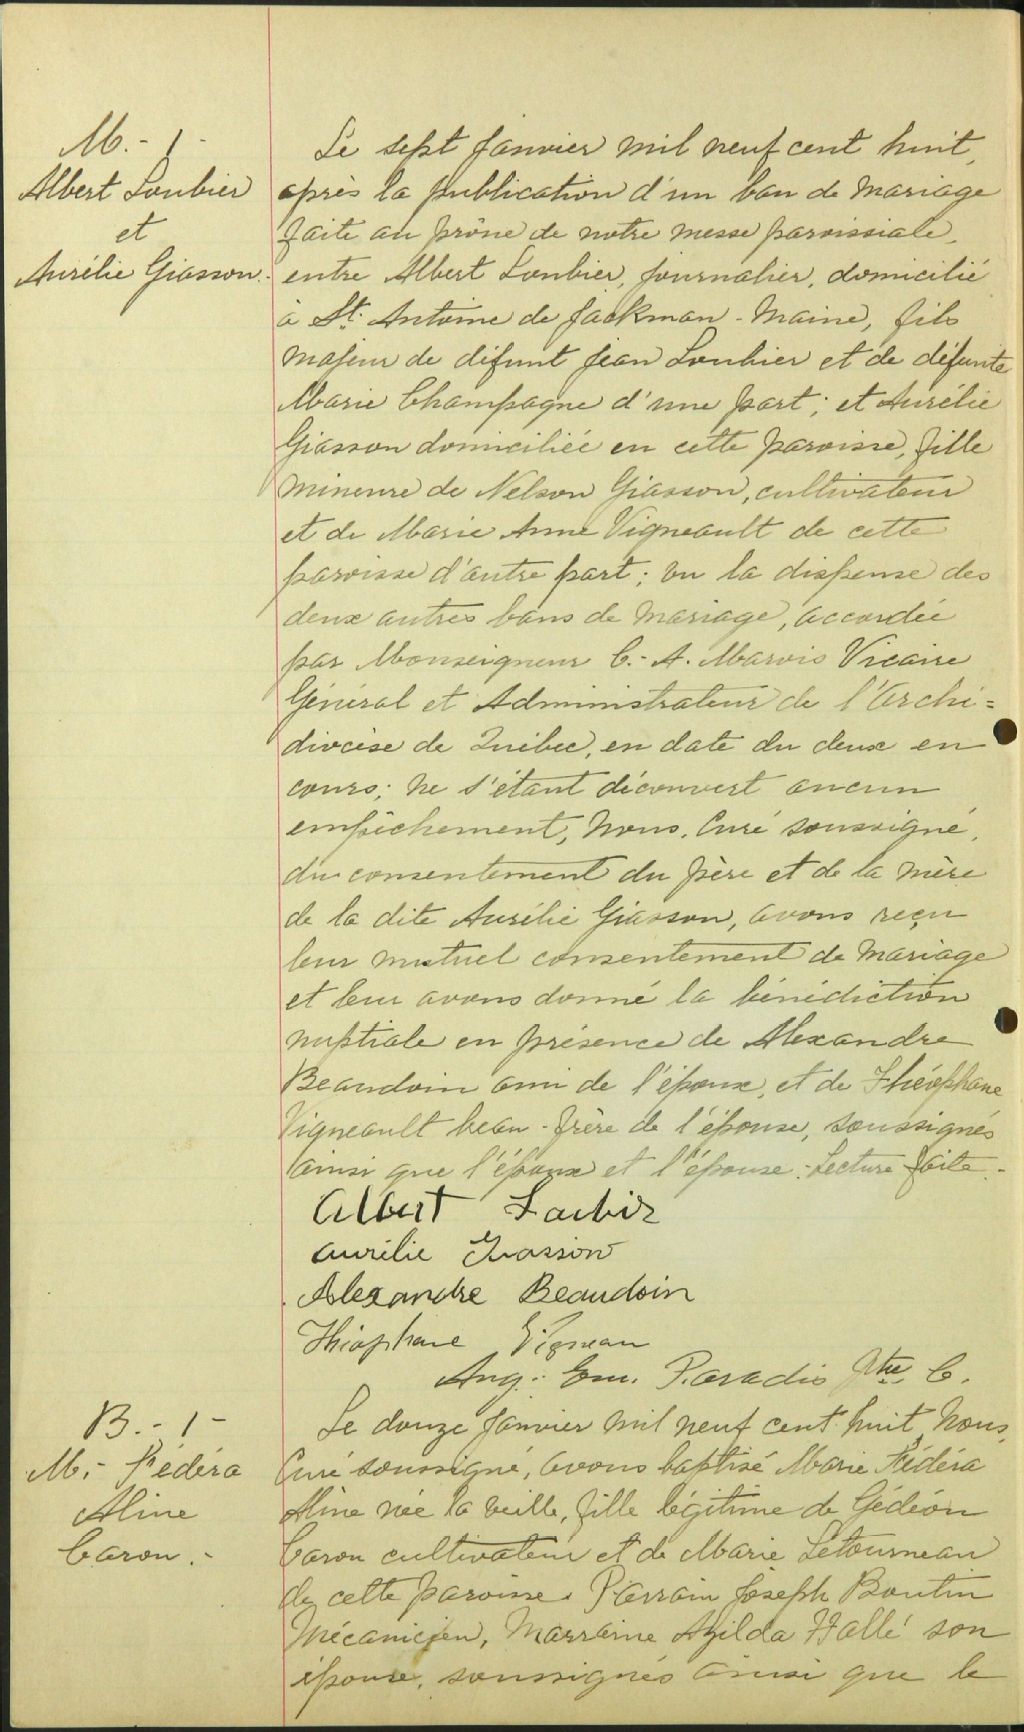 M. - 1 -
Albert Loubier
et
Aurélie Giasson.
Le sept Janvier mil neuf cent huit,
après la publication d'un ban de mariage
faite au prône de notre messe paroissiale,
entre Albert Loubier, journalier, domicilié
à St. Antoine de Jackman - Maine, fils
majeur de défunt Jean Loubier et de défunte
Marie Champagne d'une part; et Aurélie
Giasson domiciliée en cette paroisse, fille
mineure de Nelson Giasson, cultivateur
et de Marie Anne Vigneault de cette
paroisse d'autre part; vu la dispense des
deux autres bans de mariage, accordée
par Monseigneur C.-A. Marois Vicaire
Général et Administrateur de l'Archi=
diocèse de Québec, en date du deux en
cours; ne s'étant découvert aucun
empêchement, Nous, Curé soussigné,
du consentement du père et de la mère
de la dite Aurélie Giasson, avons reçu
leur mutuel consentement de mariage
et leur avons donné la bénédiction
nuptiale en présence de Alexandre
Beaudoin ami de l'époux, et de Théophane
Vigneault beau-frère de l'épouse, soussignés
ainsi que l'époux et l'épouse. Lecture faite.
Albert Loubir
Aurélie Giasson
Alexandre Beaudoin
Théophane Vigneau
Aug. Em. Paradis Ptre C.
B. - 1 -
M. - Fédéra
Aline
Caron. -
Le douze Janvier mil neuf cent huit, Nous,
Curé soussigné, avons baptisé Marie Fédéra
Aline née la veille, fille légitime de Gédéon
Caron cultivateur et de Marie Létourneau
de cette paroisse. Parrain Joseph Boutin
mécanicien, Marraine Azilda Hallé son
épouse, soussignés ainsi que le